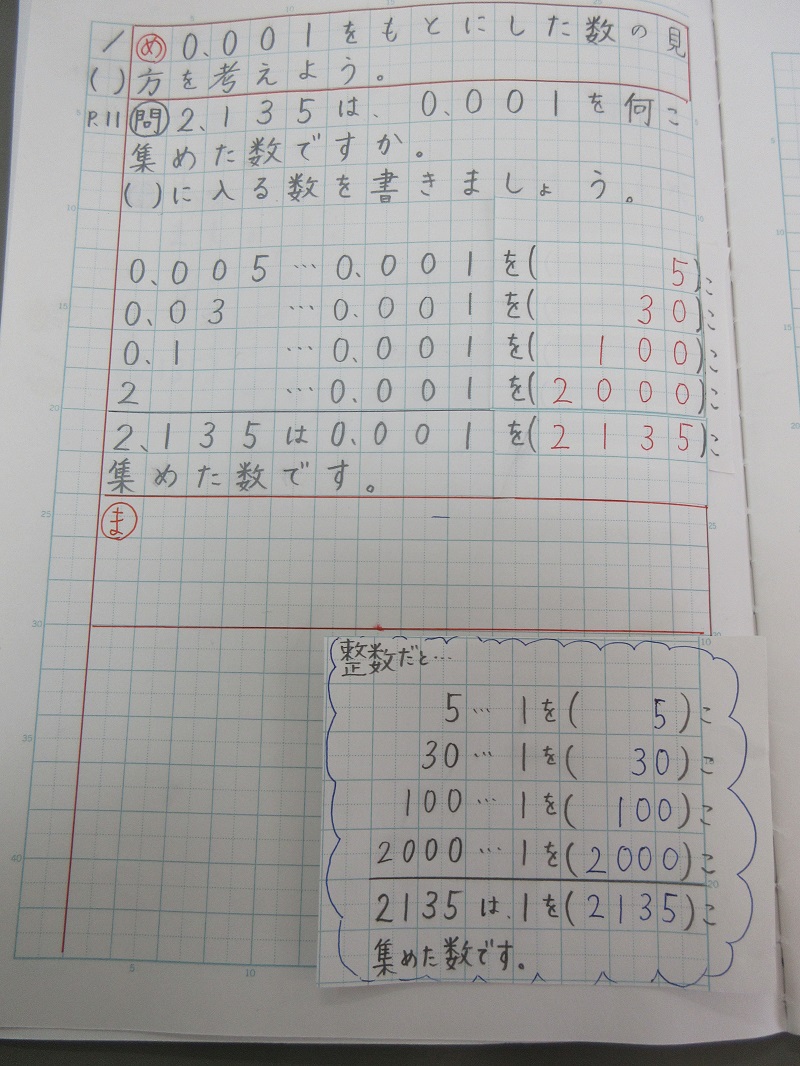 ／ め 0.001をもとにした数の見
( ) 方を考えよう。
P.11 問 2.135は、0.001を何こ
集めた数ですか。
( )に入る数を書きましょう。
0.005…0.001を( 5)こ
0.03 …0.001を( 30)こ
0.1 …0.001を( 100)こ
2 …0.001を(2000)こ
2.135は0.001を(2135)こ
集めた数です。
ま
整数だと…
5…1を( 5)こ
30…1を( 30)こ
100…1を( 100)こ
2000…1を(2000)こ
2135は、1を(2135)こ
集めた数です。
5
10
15
20
25
30
35
40
5
10